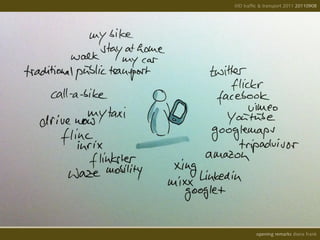 IXD traffic & transport 2011 20110908
my bike
stay at home
walk
my car
traditional public transport
call-a-bike
my taxi
drive now
flinc
inrix
flinkster
waze mobility
twitter
flickr
facebook
vimeo
youtube
googlemaps
tripadvisor
amazon
xing
Linkedin
mixx
google+
opening remarks diana frank